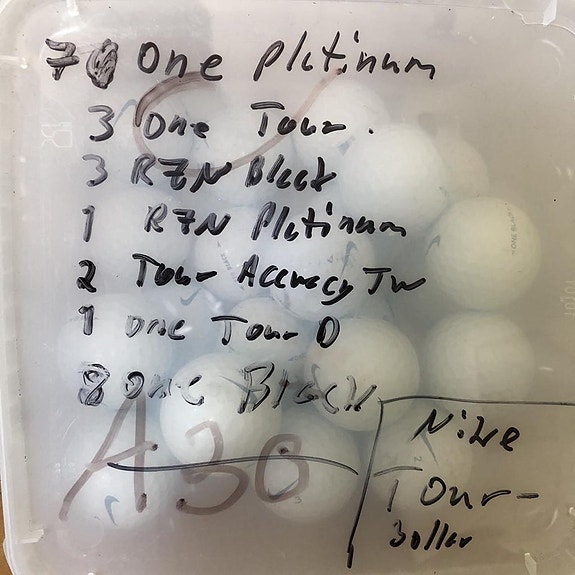 7 One Platinum
3 One Tour.
3 RZN Black
1 RZN Platinum
2 Tour Accuracy TW
1 One Tour D
8 One Black
A 30
Nike
Tour-
boller